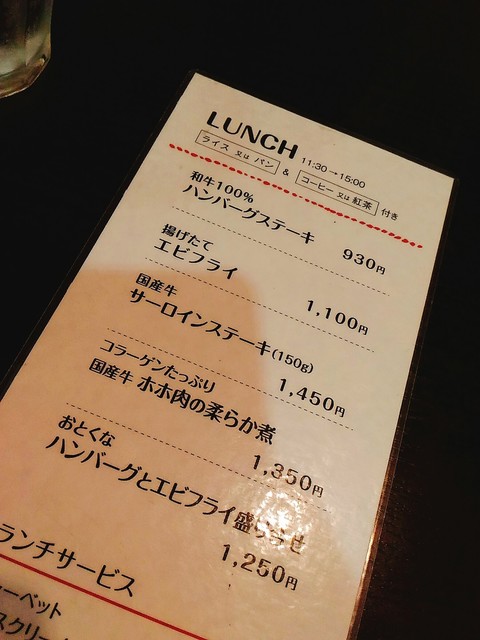 LUNCH 11:30→15:00
ライス 又は パン & コーヒー 又は 紅茶 付き
和牛100%
ハンバーグステーキ
930円
揚げたて
エビフライ
1,100円
国産牛
サーロインステーキ(150g)
1,450円
コラーゲンたっぷり
国産牛 ホホ肉の柔らか煮
1,350円
おとくな
ハンバーグとエビフライ盛り合せ
1,250円
ランチサービス
ーベット
スクリー